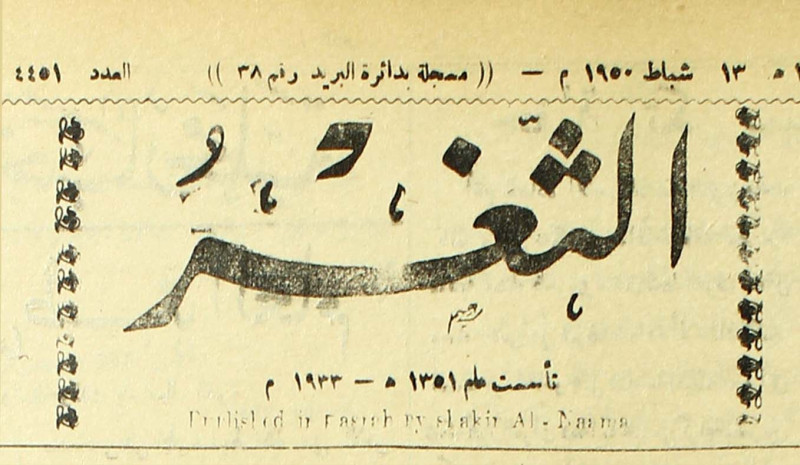 ه ١٣ شباط ١٩٥٠ م — (( مسجلة بدائرة البريد رقم ٣٨ )) العدد ٤٤٥١
الثغر
تأسست عام ١٣٥١ ه — ١٩٣٣ م
Published in Basrah By shakir Al - Naama